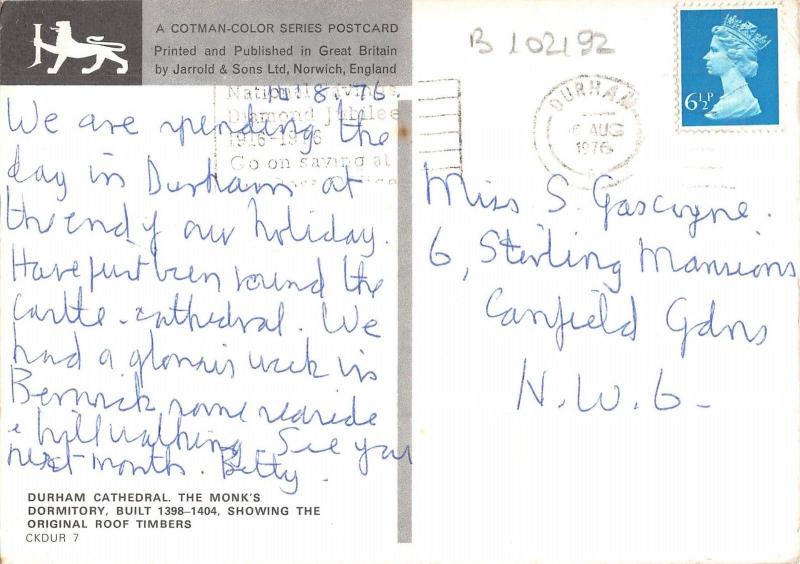 A COTMAN-COLOR SERIES POSTCARD
Printed and Published in Great Britain
by Jarrold & Sons Ltd, Norwich, England
B 102192
6½P
DURHAM
AUG
1976
National Savings
Diamond Jubilee
1916-1976
Go on saving at
8.76.
We are spending the
day in Durham at
the end of our holiday.
Have just been round the
castle - cathedral. We
had a glorious week in
Berwick, some seaside
& hill walking. See you
next month. Betty.
Miss S. Gascoyne.
6, Stirling Mansions
Canfield Gdns
N.W.6-
DURHAM CATHEDRAL. THE MONK'S
DORMITORY, BUILT 1398–1404, SHOWING THE
ORIGINAL ROOF TIMBERS
CKDUR 7